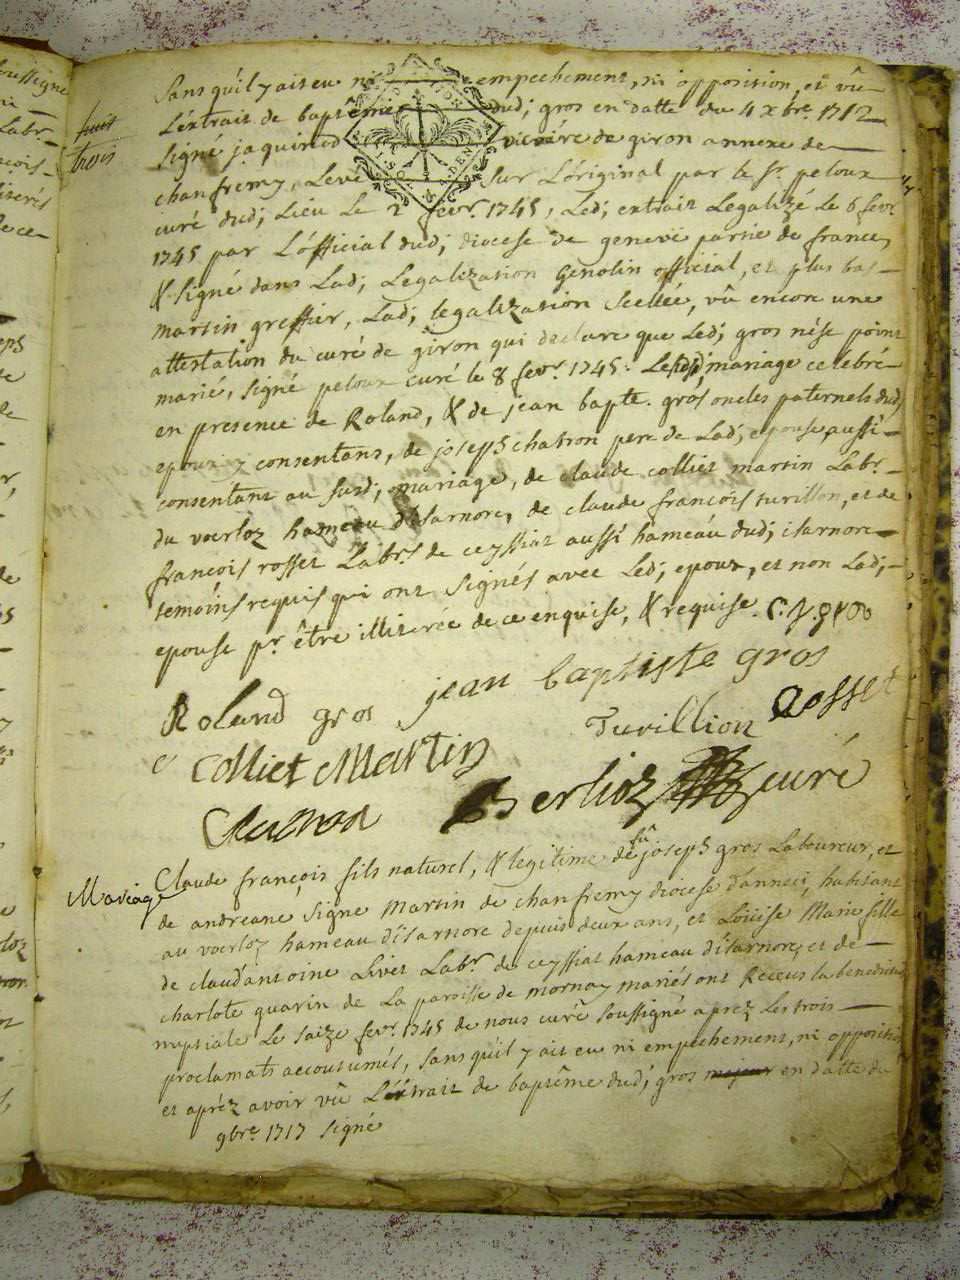 sans qu'il y ait eu ni empechement, ni opposition, et vû
L'extrait de baptême dud; gros en datte du 4 xbre. 1712
huit
signé jaquinod vicaire de giron annexe de
trois
chanfremy, Levé sur L'original par le Sr. peloux
curé dud; Lieu Le 2 fevr. 1745, Led; extrait Legalizé Le 6 fevr
1745 par L'official dud; diocese de geneve partie de france,
& signé dans Lad; Legalization Genolin official, et plus bas
martin greffier, Lad; legalization Scellée, vû encore une
attestation du curé de giron qui declare que Led; gros n'est point
marié, signé peloux curé le 8 fevr. 1745. Led; mariage celebré
en presence de Roland, & de jean bapte. gros oncles paternels dud;
epoux y consentans, de joseph chatron pere de Lad; epouse, aussi
consentant au susd; mariage, de claude colliet martin Labr.
du voerloz hameau d'isarnore, de claude françois turillon, et de
francois rosset Labrs. de ceyssiat aussi hameau dud; isarnore
temoins requis qui ont signés avec Led; epoux, et non Lad;
epouse pr. être illiterée de ce enquise, & requise. C. J. gros
Roland gros jean baptiste gros
c colliet Martin Turillion Rosset
Berlioz curé
Mariage
Claude françois fils naturel, & legitime de fû joseph gros Laboureur, et
de andreane signe martin de chanfremy diocese d'anneci, habitant
au voerloz hameau d'isarnore depuis deux ans, et Louise Marie fille
de claud'antoine Livet Labr. de ceyssiat hameau d'isarnore, et de
charlote quarin de La paroisse de mornay mariés ont Receus la benediction
nuptiale Le saize fevr. 1745 de nous curé soussigné aprez Les trois
proclamats accoutumés, sans qu'il y ait eu ni empechement, ni opposition
et apréz avoir vû L'éxtrait de baptême dud; gros en datte du
9bre. 1717 signé